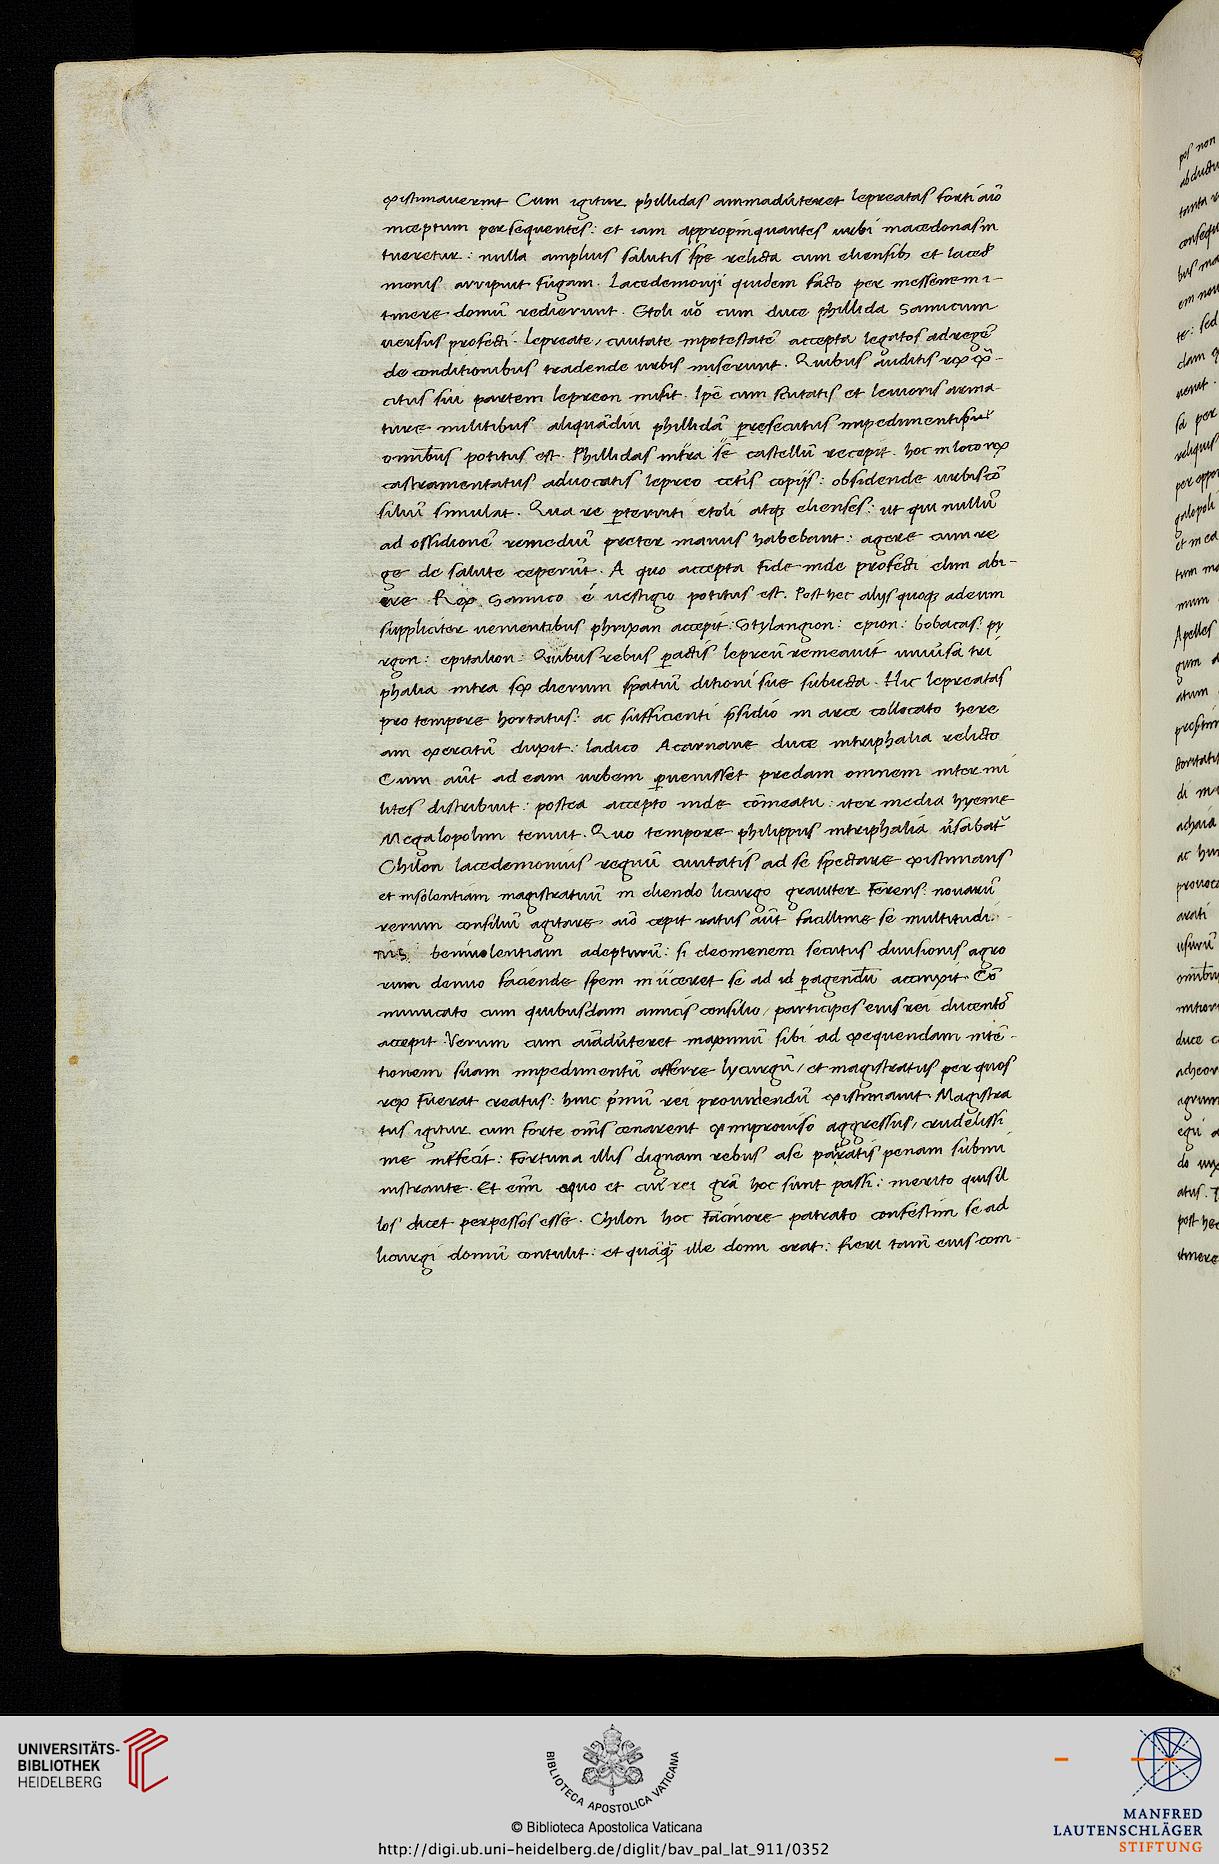 existimaverint Cum igitur phillidas animadūteret lepreatas forti aīo
inceptum persequentes: et iam appropinquantes urbi macedonas in
tueretur: nulla amplius salutis spe relicta cum eliensibȝ et laced̄
monis arripiunt fugam. Lacedemonij quidem facto per messenem i-
tinere domū redierunt. Etoli uō cum duce phillida Samicum
uersus profecti. Lepreate, ciuitate inpotestatē accepta legatos ad regē
de conditionibus tradende urbis miserunt. Quibus auditis rex ex̄-
citus sui partem lepreon misit. Ipē cum scutatis et leuioris arma
ture militibus aliquādiu phillidā ꝑsecutus impedimentis suis
omībus potitus est. Phillidas intra se castellū recepit. hoc in loco rex
castramentatus aduocatis lepreo cet̄is copijs: obsidende urbis cō
siliū simulat. Qua re ꝑterriti etoli atqȝ elienses: ut qui nullū
ad ossidionē remediū preter manus habebant: agere cum re
ge de salute ceperūt. A quo accepta fide inde profecti elim abi-
ere Rex Samico é uestigio potitus est. Post hec alijs quoqȝ adeum
suppliciter uenientibus phrixan accepit: Stylangion: epion: bobacas: py
rgon: epitalion: Quibus rebus ꝑactis lepreū remeauit uniūsa tri
phalia intra sex dierum spatiū ditioni sue subiecta. Hic lepreatas
pro tempore hortatus: ac sufficienti p̄sidio in arce collocato here
am exercitū duxit: ladico Acarnane duce intriphalia relicto
Cum aūt ad eam urbem ꝑuenisset predam omnem inter mi
lites distribuit: postea accepto inde cōmeatu: iter media hyeme
Megalopolim tenuit. Quo tempore philippus intriphaliā ūsabat̄
Chilon lacedemonius regnū ciuitatis ad se spectare existimans
et insolentiam magistratuū in eliendo licurgo grauiter ferens: nouarū
rerum consiliū agitare aīo cepit ratus aūt facillime se multitudi:
nis beniuolentiam adepturū: si cleomenem secutus diuisionis agro
rum denuo faciende spem iniiceret se ad id ꝑagendū accinxit Cō
municato cum quibusdam amicis consilio, participes eius rei ducentos
accepit. Verum cum aīaduteret maximū sibi ad exequendam intē-
tionem suam impedimentū afferre lycurgū, et magistratus per quos
rex fuerat creatus: hinc p̄mū rei prouidendū existimauit Magistra
tus igitur cum forte om̄s cenarent ex improuiso aggressus, crudelissi
me int̄fecit: Fortuna illis dignam rebus ase paratis penam submi
nistrante. Et eīm equo et cuī rei grā hoc sunt passi: merito quis il
los dicet perpessos esse. Chilon hoc facinore patrato confestim se ad
licurgi domū contulit: et quāqȝ ille domi erat: fieri tamē eius com-
UNIVERSITÄTS-
BIBLIOTHEK
HEIDELBERG
BIBLIOTECA APOSTOLICA VATICANA
© Biblioteca Apostolica Vaticana
http://digi.ub.uni-heidelberg.de/diglit/bav_pal_lat_911/0352
MANFRED
LAUTENSCHLÄGER
STIFTUNG